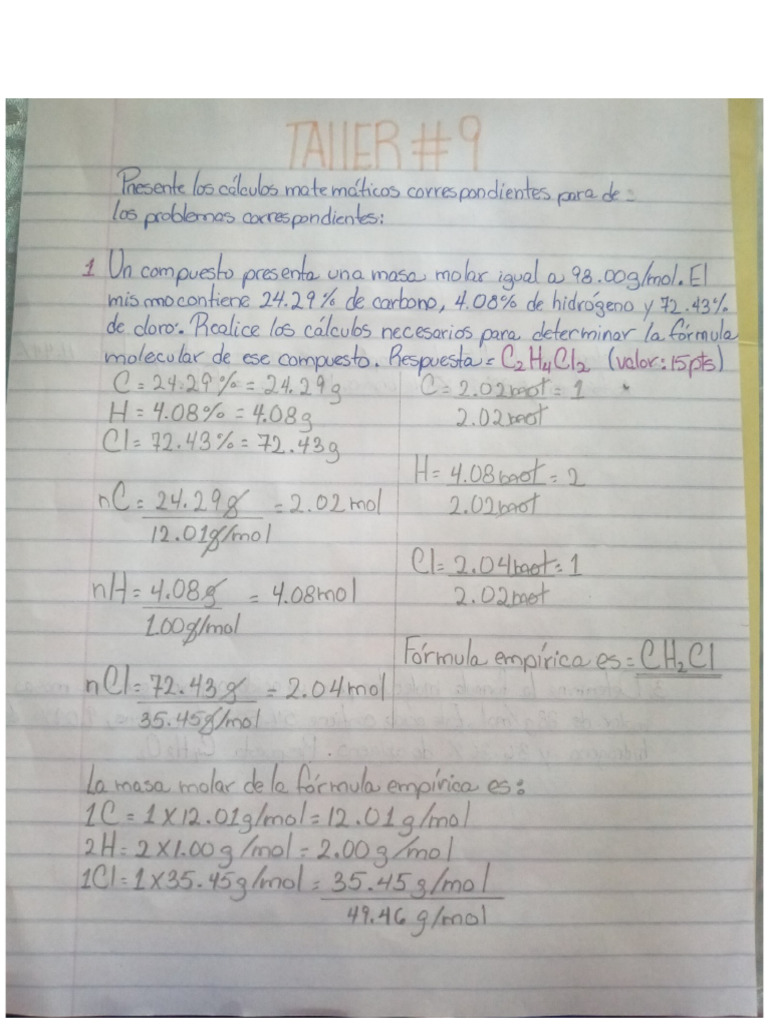 TALLER #9
Presente los cálculos matemáticos correspondientes para de
los problemas correspondientes:
1 Un compuesto presenta una masa molar igual a 98.00g/mol. El
mismo contiene 24.29% de carbono, 4.08% de hidrógeno y 72.43%
de cloro. Realice los cálculos necesarios para determinar la fórmula
molecular de ese compuesto. Respuesta = C2H4Cl2 (valor: 15pts)
C = 24.29% = 24.29g
H = 4.08% = 4.08g
Cl = 72.43% = 72.43g
nC = 24.29g = 2.02mol
12.01g/mol
nH = 4.08g = 4.08mol
1.00g/mol
nCl = 72.43g = 2.04mol
35.45g/mol
C = 2.02mol = 1
2.02mol
H = 4.08mol = 2
2.02mol
Cl = 2.04mol = 1
2.02mol
Fórmula empírica es = CH2Cl
La masa molar de la fórmula empírica es:
1C = 1 X 12.01g/mol = 12.01g/mol
2H = 2 X 1.00g/mol = 2.00g/mol
1Cl = 1 X 35.45g/mol = 35.45g/mol
49.46 g/mol